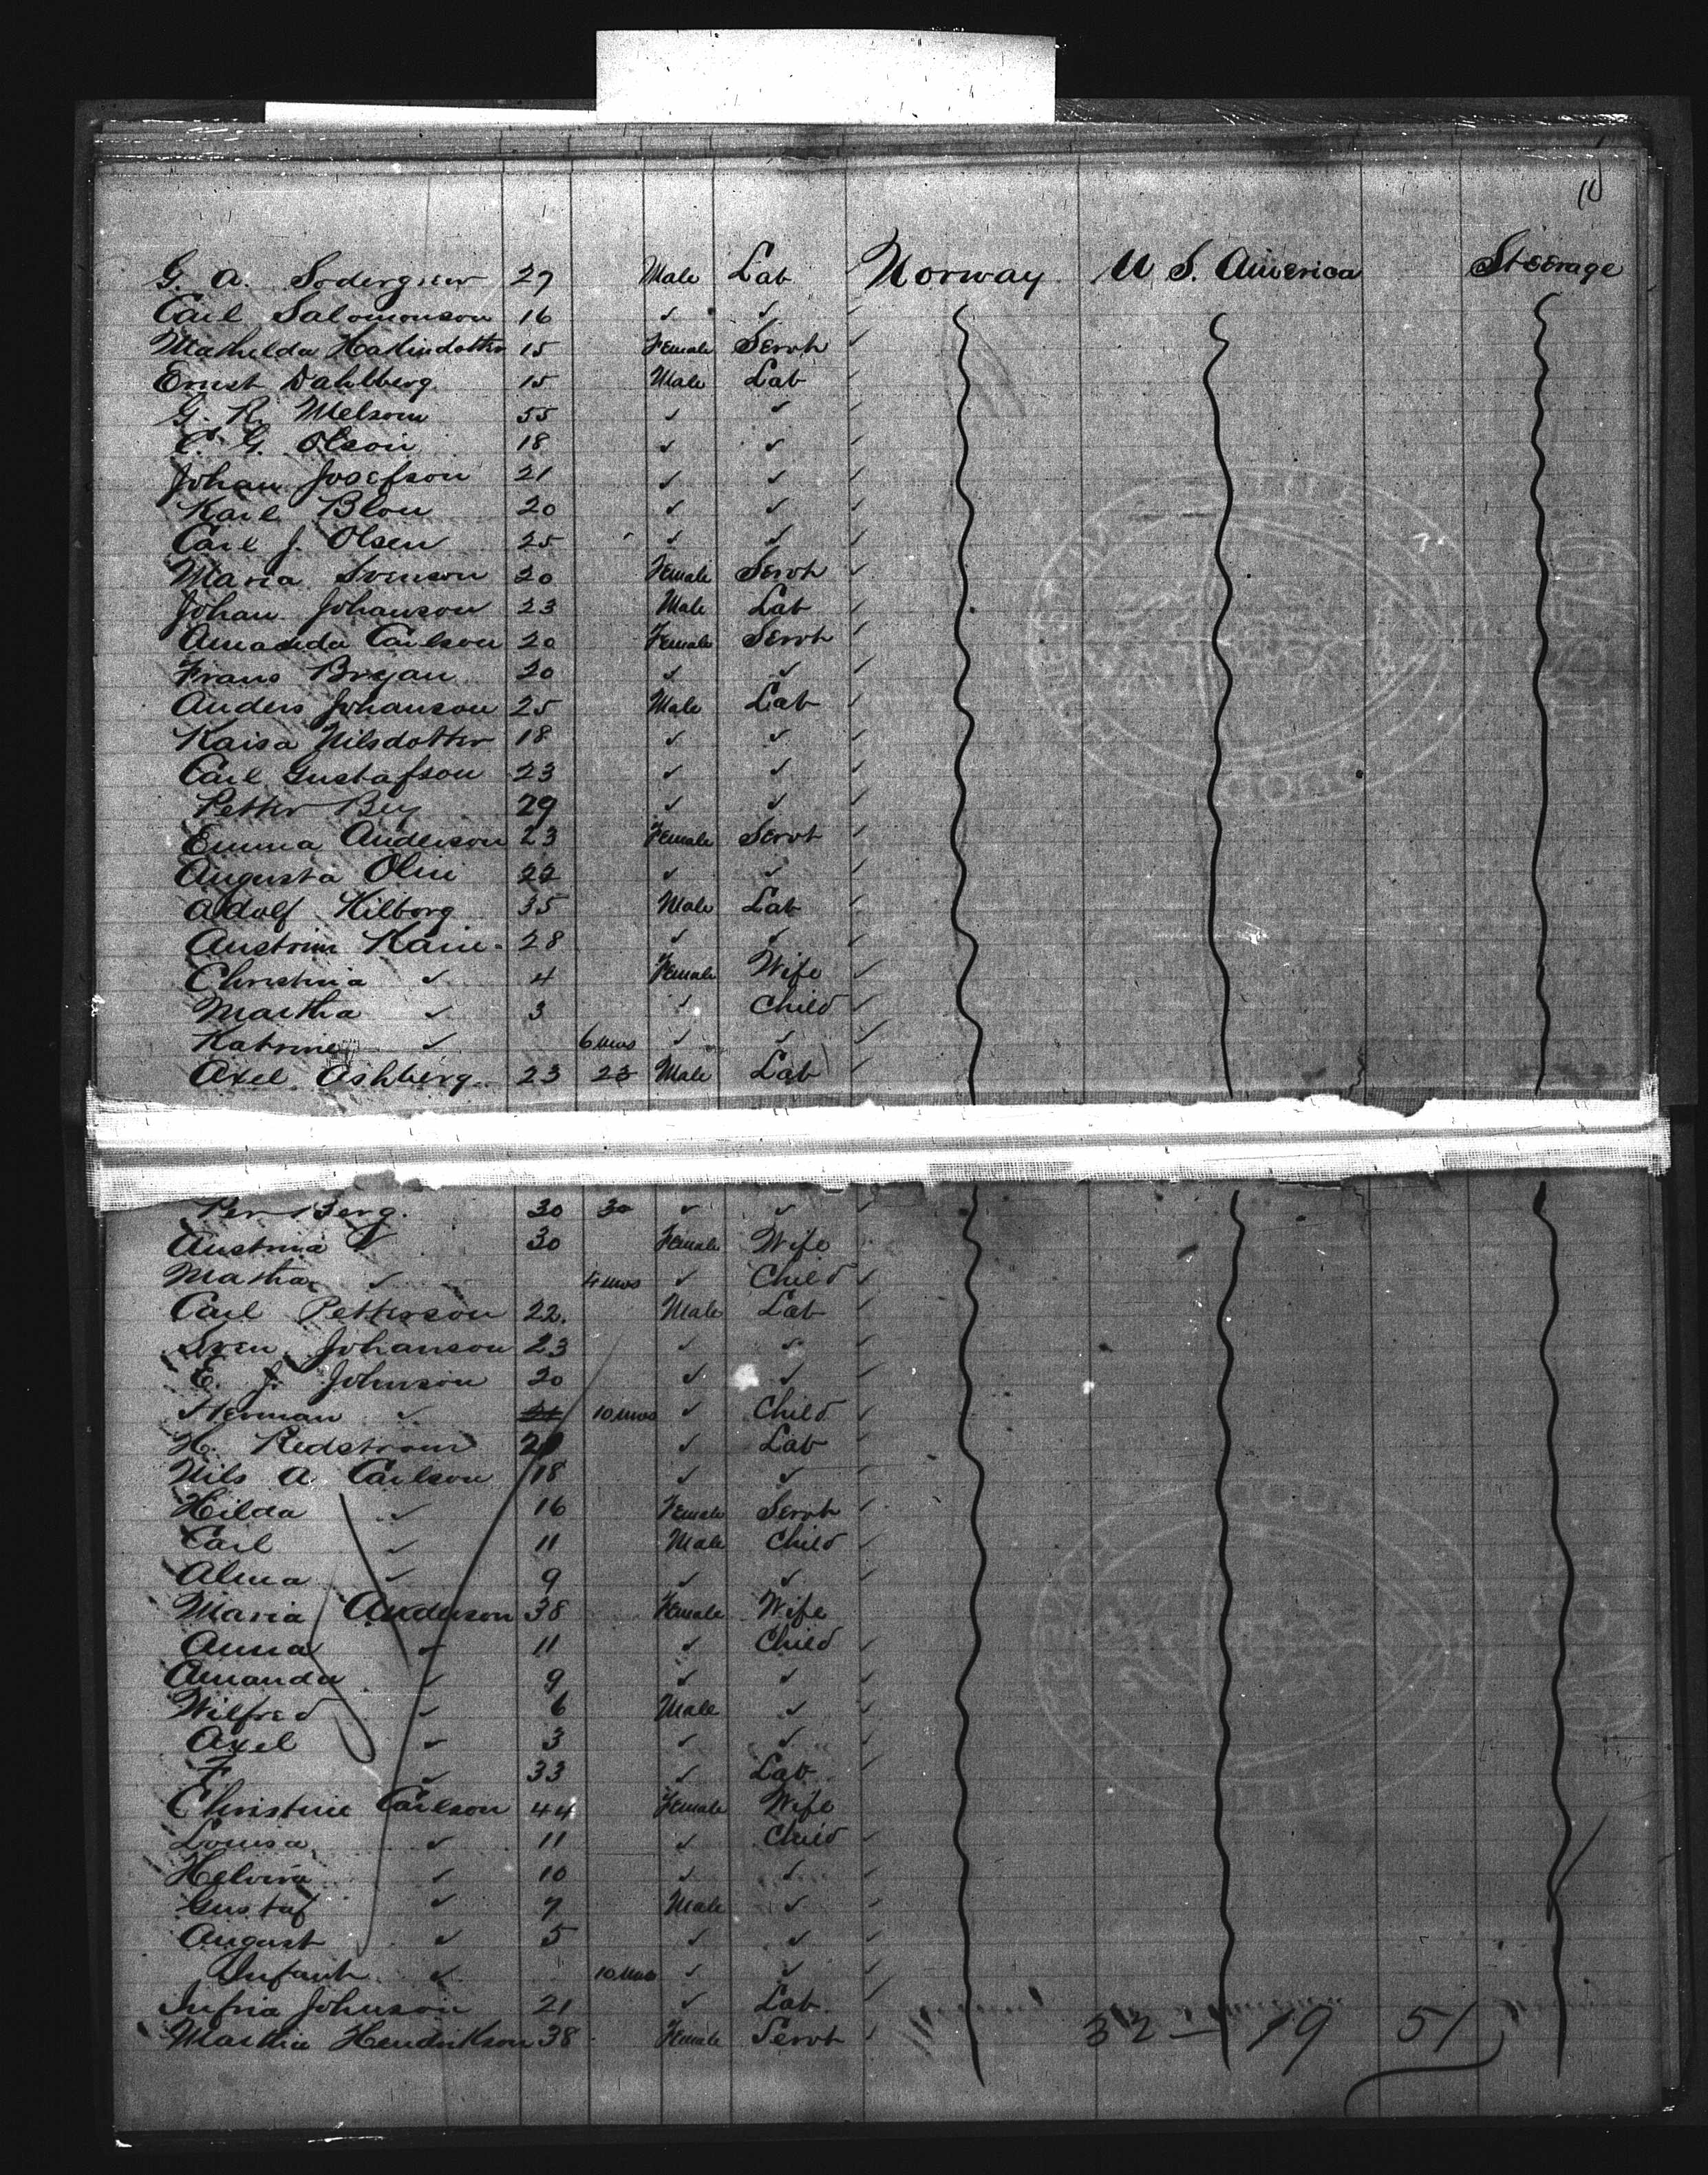 10
G. A. Sodergren 27 Male Lab Norway U S. America Steerage
Carl Salomonson 16 ✓ ✓
Mathelda 15 Female Servt
Ernst Dahlberg 15 Male Lab
G. R. Melsom 55 ✓ ✓
C. G. Olson 18 ✓ ✓
Johan Josefson 21 ✓ ✓
Karl Blou 20 ✓ ✓
Carl J. Olsen 25 ✓ ✓
Maria Svenson 20 Female Servt
Johan Johanson 23 Male Lab
Amanda Carlson 20 Female Servt
Frans Bryan 20 ✓ ✓
Anders Johanson 25 Male Lab
Kaisa Nilsdotter 18 ✓ ✓
Carl Gustafson 23 ✓ ✓
Petter 29 ✓ ✓
Emma Anderson 23 Female Servt
Augusta Olin 22 ✓ ✓
Adolf Kilborg 35 Male Lab
Karin 28 ✓ ✓
Christina ✓ 4 Female Wife
Martha ✓ 3 ✓ Child
Katrine ✓ 6 mos ✓ ✓
Axel Ashberg 23 23 Male Lab
Per Berg. 30 30 ✓ ✓
Austrina ✓ 30 Female Wife
Martha ✓ 4 mos ✓ Child
Carl Petterson 22. Male Lab
Sven Johanson 23 ✓ ✓
E. J. Johnson 20 ✓ ✓
Herman ✓ 10 mos ✓ Child
H. Redstrom ✓ Lab
Nils A Carlson 18 ✓ ✓
Hilda ✓ 16 Female Servt
Carl ✓ 11 Male Child
Alma ✓ 9 ✓ ✓
Maria Anderson 38 Female Wife
Anna ✓ 11 ✓ Child
Amanda ✓ 9 ✓ ✓
Wilfred ✓ 6 Male ✓
Axel ✓ 3 ✓ ✓
F. ✓ 33 ✓ Lab
Christine Carlson 44 Female Wife
Louisa ✓ 11 ✓ Child
Helvina ✓ 10 ✓ ✓
Gustaf ✓ 7 Male ✓
August ✓ 5 ✓ ✓
Infant ✓ 10 mos ✓ ✓
Johnson 21 ✓ Lab.
Marthia Hendrikson 38 Female Servt
32 — 19 51